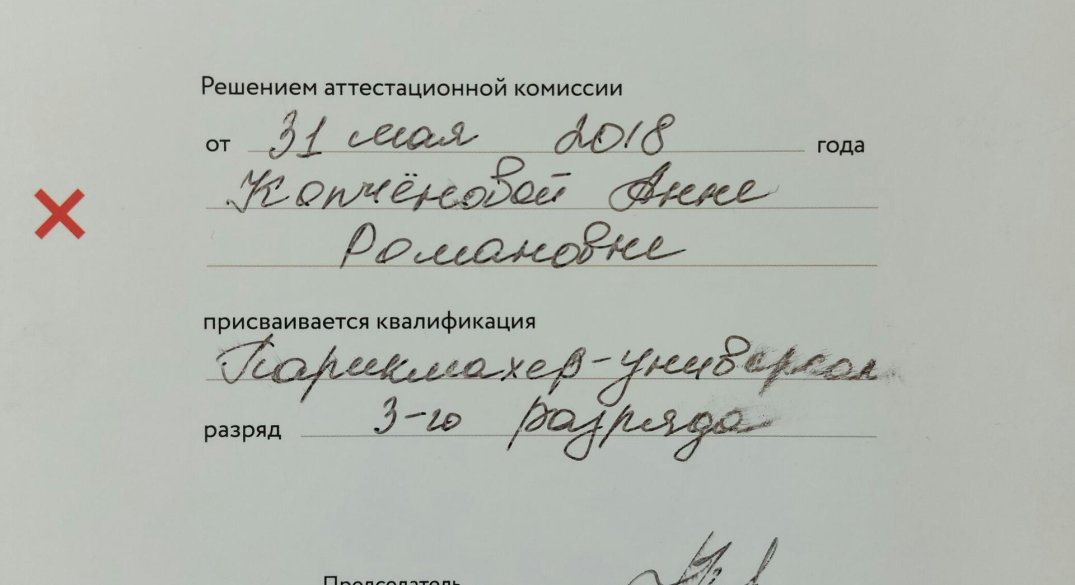 Решением аттестационной комиссии
от 31 мая 2018 года
Копчёновой Анне
Романовне
присваивается квалификация
Парикмахер-универсал
разряд 3-го разряда
Председатель